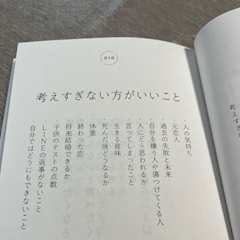 010
考えすぎない方がいいこと
・人の気持ち
・元恋人
・過去の失敗と未来
・自分を嫌う人や傷つけてくる人
・人にどう思われるか
・言ってしまったこと
・生きる意味
・死んだ後どうなるか
・体重
・終わった恋
・将来結婚できるか
・子供のテストの点数
・LINEの返事がないこと
・自分ではどうにもできないこと